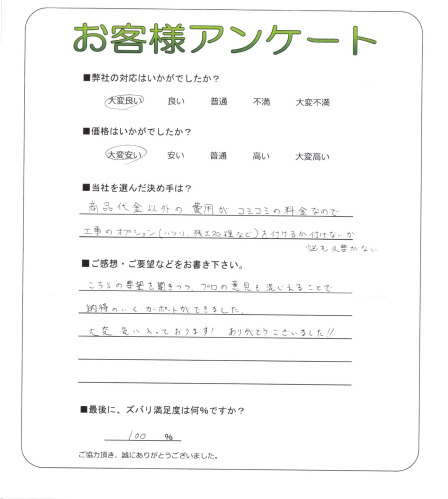 お客様アンケート
■弊社の対応はいかがでしたか?
大変良い 良い 普通 不満 大変不満
■価格はいかがでしたか?
大変安い 安い 普通 高い 大変高い
■当社を選んだ決め手は?
商品代金以外の費用がコミコミの料金なので
工事のオプション(ハツリ、残土処理など)を付けるか付けないか
悩む必要がない
■ご感想・ご要望などをお書き下さい。
こちらの要望を聞きつつ、プロの意見も混じえることで
納得のいくカーポートができました。
大変気に入っております! ありがとうございました!!
■最後に、ズバリ満足度は何%ですか?
100 %
ご協力頂き、誠にありがとうございました。